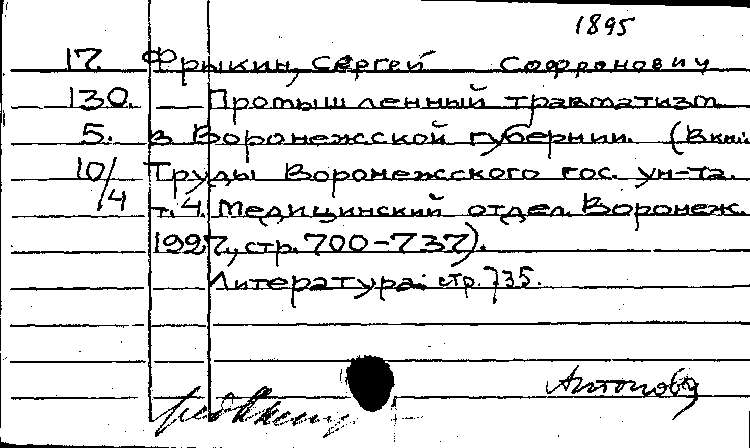 1895
17. Фрыкин, Сергей Софронович
130. Промышленный травматизм
5. в Воронежской губернии. (В кн.:
10/4 Труды Воронежского гос. ун-та.
т. 4. Медицинский отдел. Воронеж.
1927, стр. 700-737).
Литература: стр. 735.